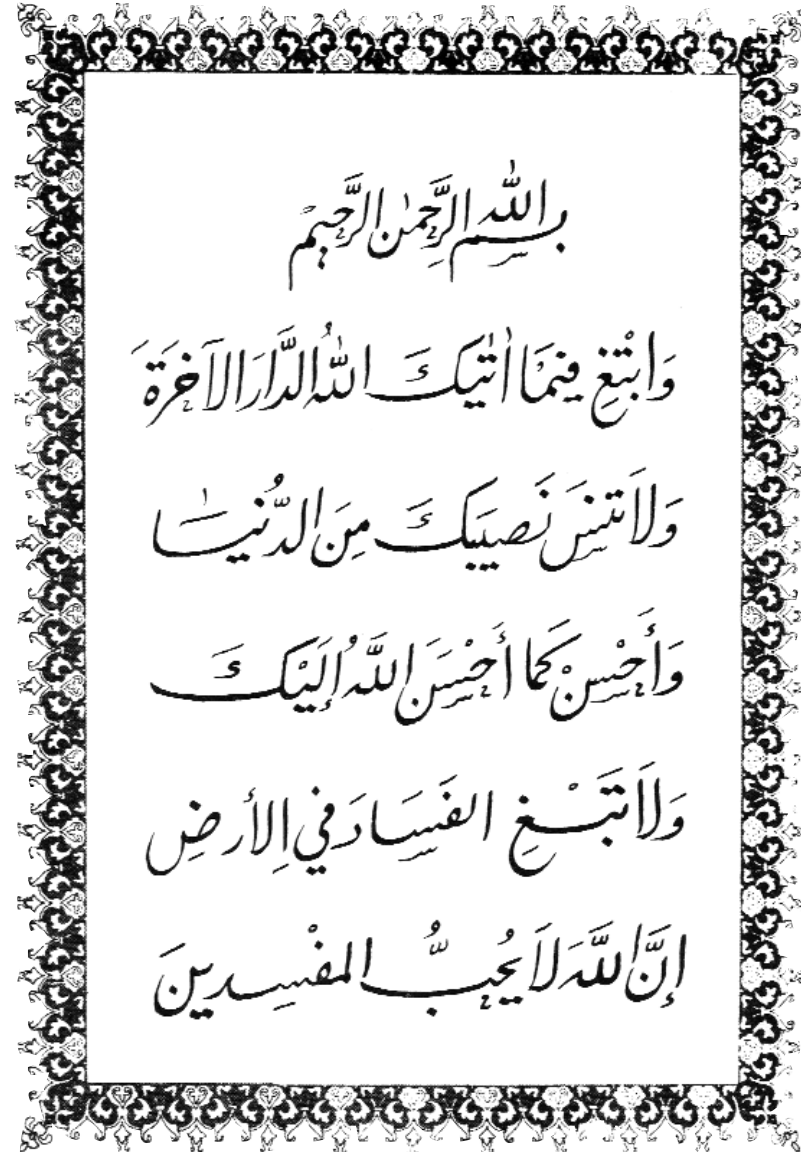 بِسْمِ اللّٰهِ الرَّحْمٰنِ الرَّحِيْمْ
وَابْتَغِ فِيمَا اٰتٰيكَ اللّٰهُ الدَّارَ الآخِرَةَ
وَلَا تَنسَ نَصِيبَكَ مِنَ الدُّنيَا
وَأَحْسِنْ كَمَا أَحْسَنَ اللَّهُ إِلَيْكَ
وَلَا تَبْغِ الفَسَادَ فِي الأَرضِ
إِنَّ اللَّهَ لَا يُحِبُّ المفْسِدِينَ